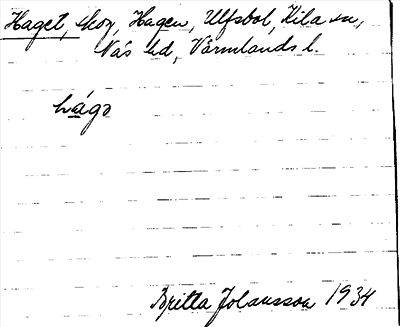 Haget, skog, Hagen, Ulfsbol, Kila sn,
Näs hd, Värmlands l.
hágə
Britta Johansson 1934